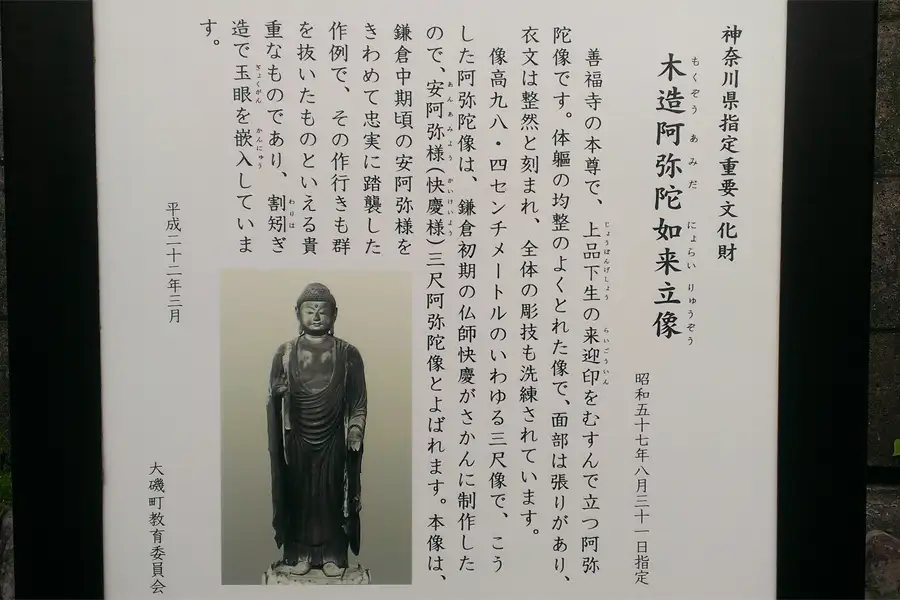 神奈川県指定重要文化財
木造阿弥陀如来立像
もくぞう あみだ にょらい りゅうぞう
昭和五十七年八月三十一日指定
善福寺の本尊で、上品下生の来迎印をむすんで立つ阿弥
じょうぼんげしょう らいごういん
陀像です。体軀の均整のよくとれた像で、面部は張りがあり、
衣文は整然と刻まれ、全体の彫技も洗練されています。
像高九八・四センチメートルのいわゆる三尺像で、こう
した阿弥陀像は、鎌倉初期の仏師快慶がさかんに制作した
ので、安阿弥様(快慶様)三尺阿弥陀像とよばれます。本像は、
あんあみよう かいけいよう
鎌倉中期頃の安阿弥様を
きわめて忠実に踏襲した
作例で、その作行きも群
を抜いたものといえる貴
重なものであり、割矧ぎ
わりは
造で玉眼を嵌入していま
ぎょくがん かんにゅう
す。
平成二十二年三月
大磯町教育委員会